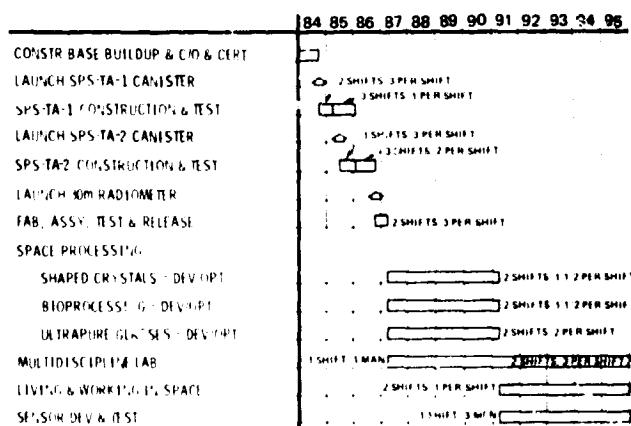 84 85 86 87 88 89 90 91 92 93 94 95
CONSTR BASE BUILDUP & C/O & CERT
LAUNCH SPS-TA-1 CANISTER 2 SHIFTS 3 PER SHIFT
3 SHIFTS 1 PER SHIFT
SPS-TA-1 CONSTRUCTION & TEST
LAUNCH SPS-TA-2 CANISTER 1 SHIFTS 3 PER SHIFT
3 SHIFTS 2 PER SHIFT
SPS-TA-2 CONSTRUCTION & TEST
LAUNCH 30m RADIOMETER
FAB, ASSY, TEST & RELEASE 2 SHIFTS 3 PER SHIFT
SPACE PROCESSING
SHAPED CRYSTALS - DEV/OPT 2 SHIFTS 1 1/2 PER SHIFT
BIOPROCESSING - DEV/OPT 2 SHIFTS 1 1/2 PER SHIFT
ULTRAPURE GLASSES - DEV/OPT 2 SHIFTS 2 PER SHIFT
MULTIDISCIPLINE LAB 1 SHIFT 1 MAN 2 SHIFTS 2 PER SHIFT
LIVING & WORKING IN SPACE 2 SHIFTS 1 PER SHIFT
SENSOR DEV & TEST 1 SHIFT 3 MEN